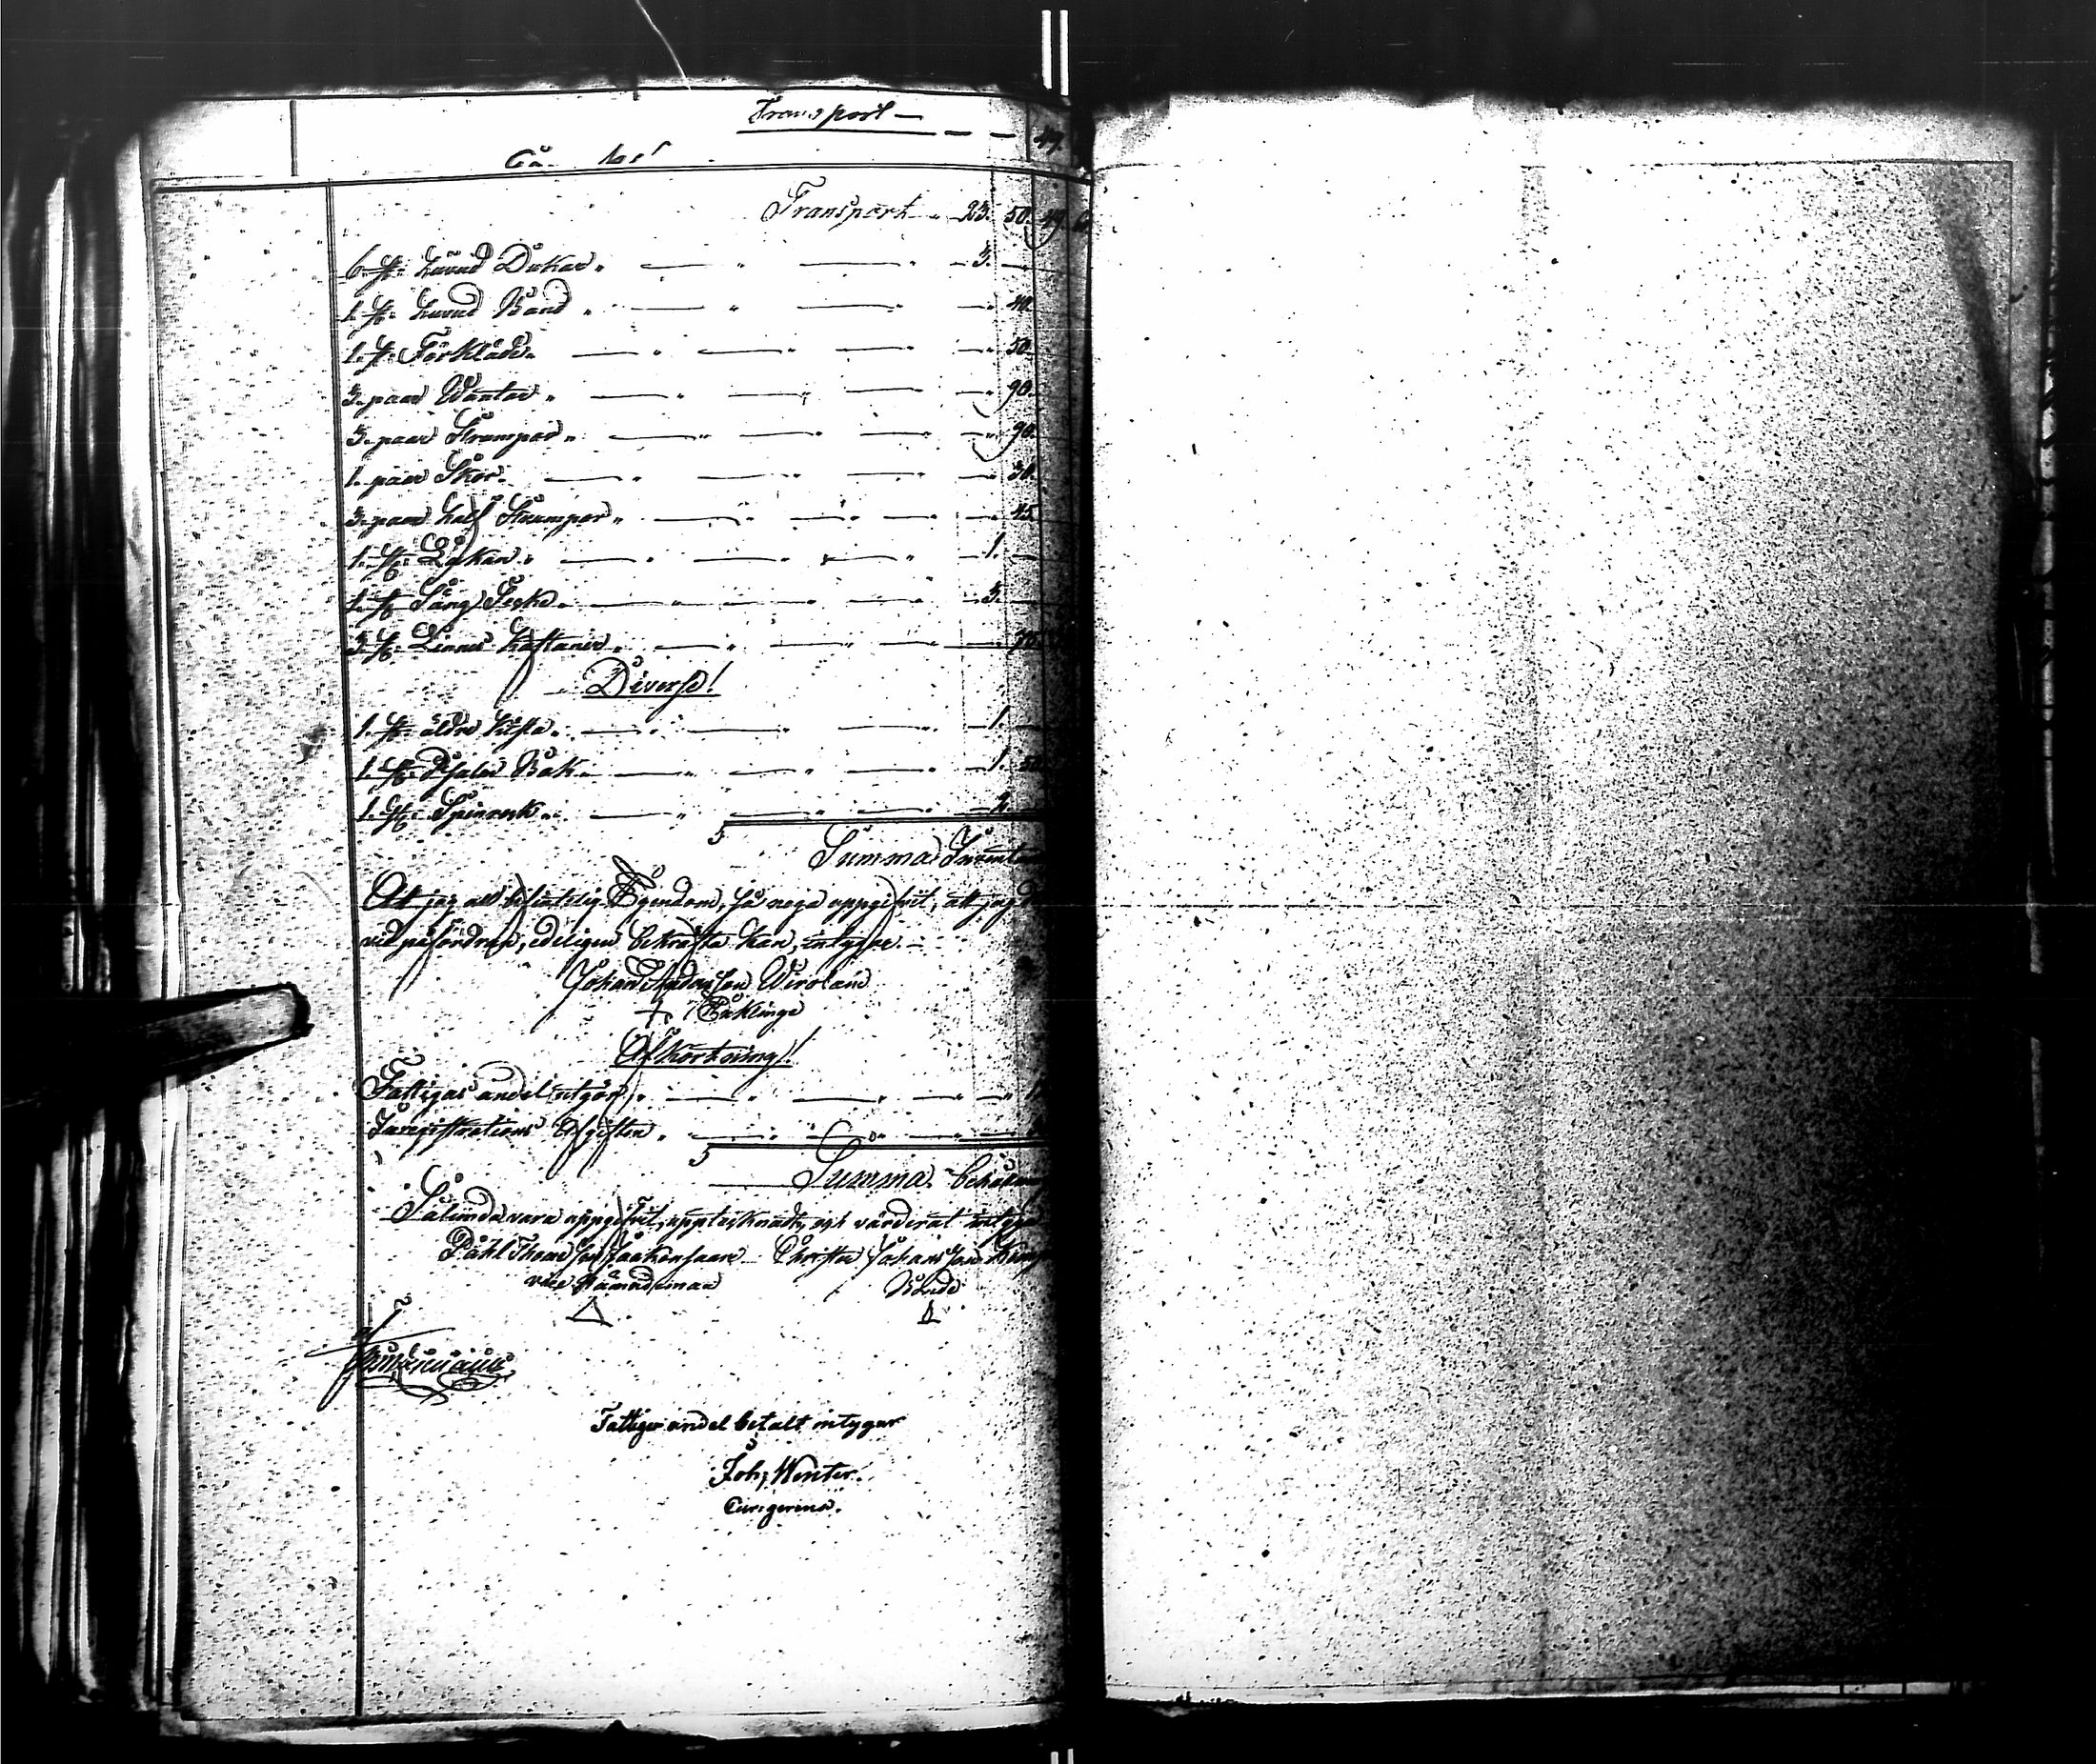 Transport —
49.
Transport 23. 50. 49.
6. st. huvud Dukar 3. —
1. st. huvud Band 40.
1. st. Förkläde 50.
3. paar Wantar 90.
3. paar Strumpor 90.
1. paar Skor 30.
3. paar half Strumpor 45
1. st. Lakan 1. —
1. st. Säng Täcke 3. —
3. st. Linne 75
Diverse!
1. st. äldre kista 1. —
1. st. Psalm Bok 1. 50
1. st. Spinrock 2.
Summa
Att jag all befintelig Egendom, så noga uppgifvit, att jag
vid påfordran, edeligen bekräfta kan, intygar. —
Johan Andersson Wirolain
Räklinge
Afkortning!
Fattigas andel utgör
Inregistrations Afgiften
Summa behållning
Sålunda vara uppgifvit, upptecknadt, och värderat intyga
Påhl Thomasson Christer Johansson
vice Nämndeman Bonde
Fattigas andel betalt intygar
Joh. Winter.